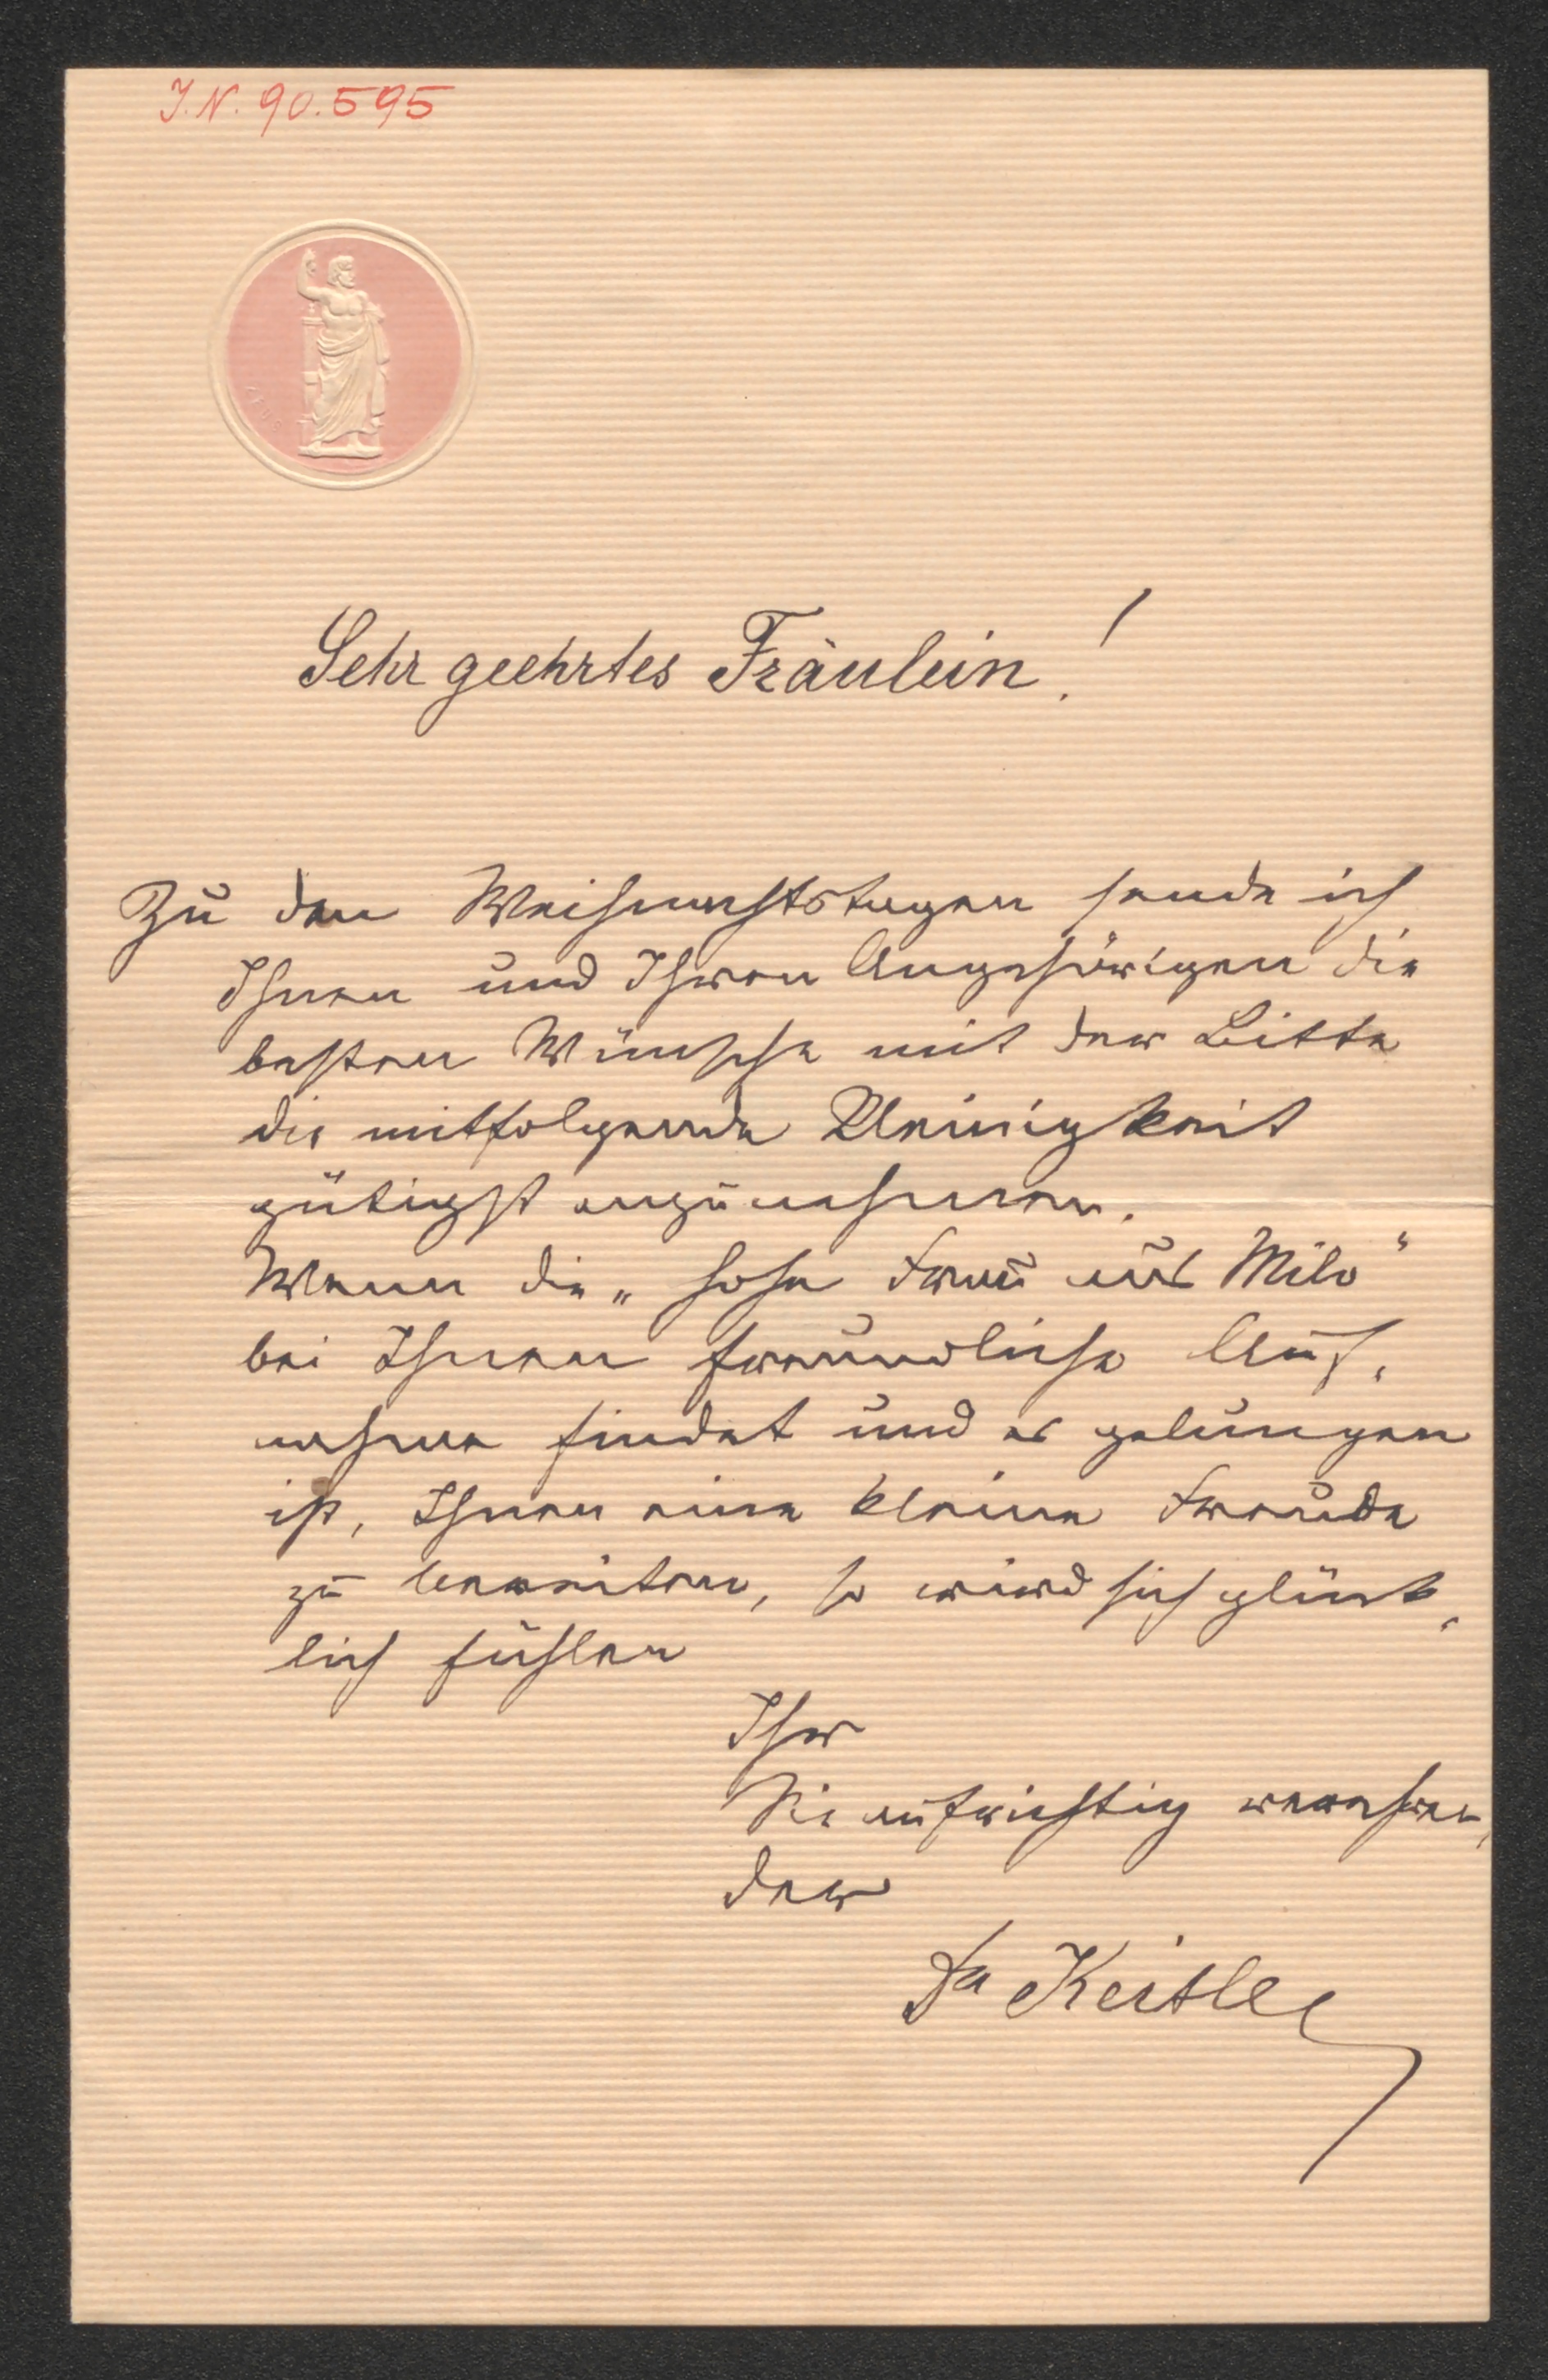 J.N. 90.595
Sehr geehrtes Fräulein!
Zu den Weihnachtstagen sende ich
Ihnen und Ihren Angehörigen die
besten Wünsche mit der Bitte
die mitfolgende Kleinigkeit
gütigst anzunehmen.
Wenn die „hohe Frau aus Milo“
bei Ihnen freundliche Auf-
nahme findet und es gelungen
ist, Ihnen eine kleine Freude
zu bereiten, so wird sich glück-
lich fühlen
Ihr
Sie aufrichtig verehren-
der
Dr Keitler